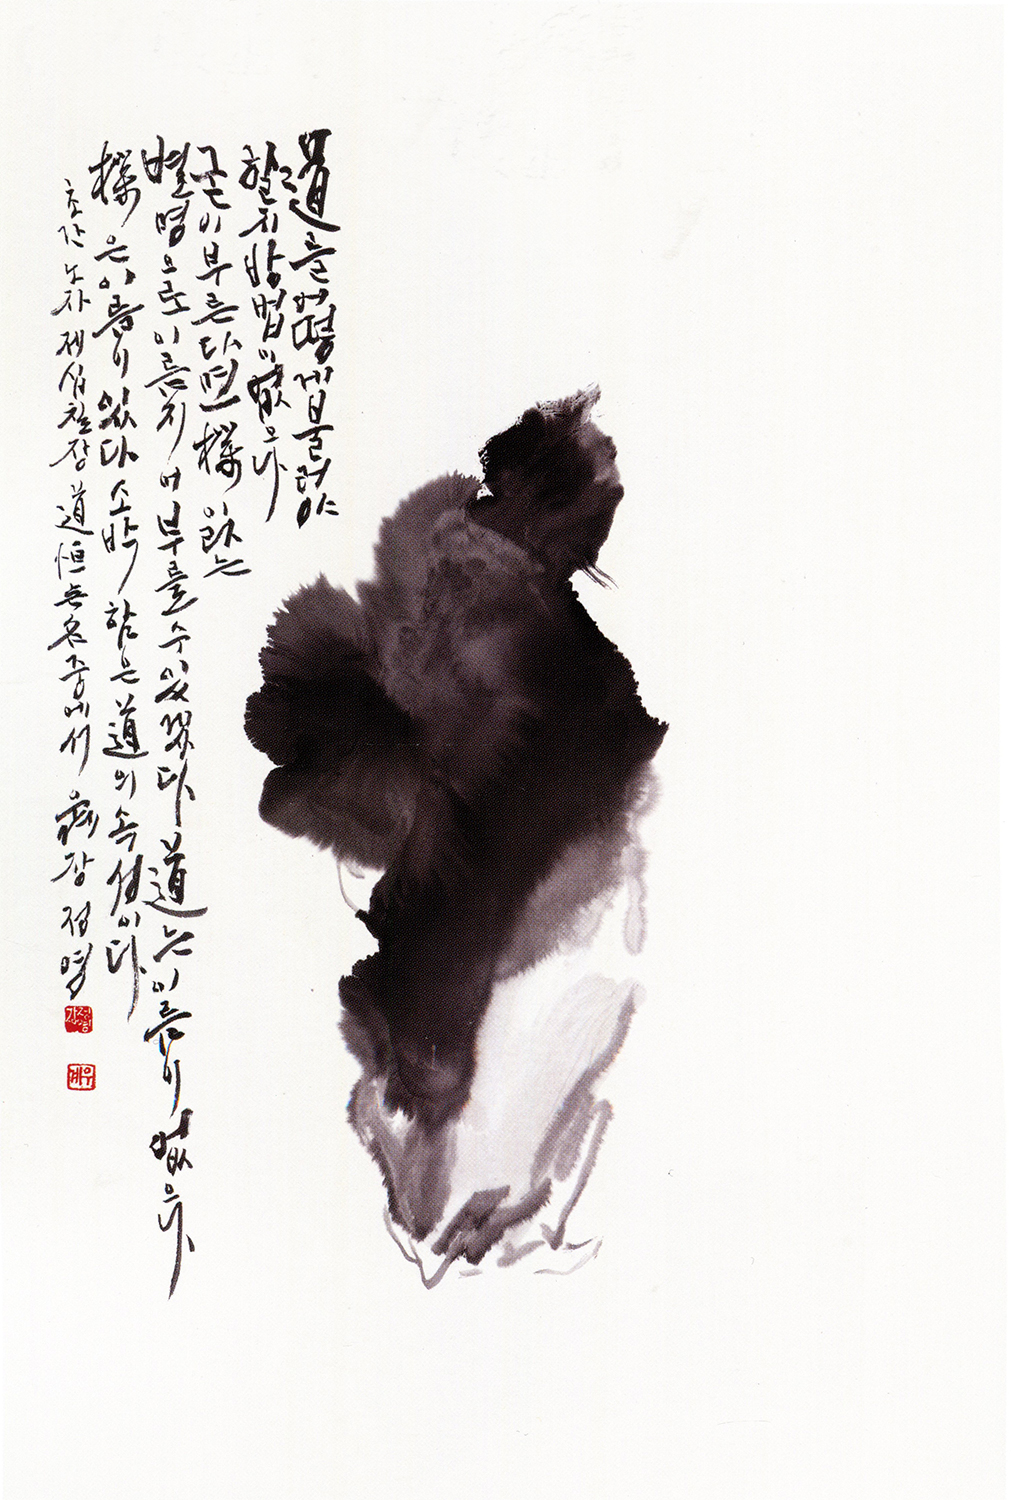 道를어떻게불러야
할지방법이없으나
굳이부른다면樸이라는
별명으로이름지어부를수있겠다道는이름이없으나
樸은이름이있다소박함은道의속성이다
초간노자제십칠장道恒無名중에서